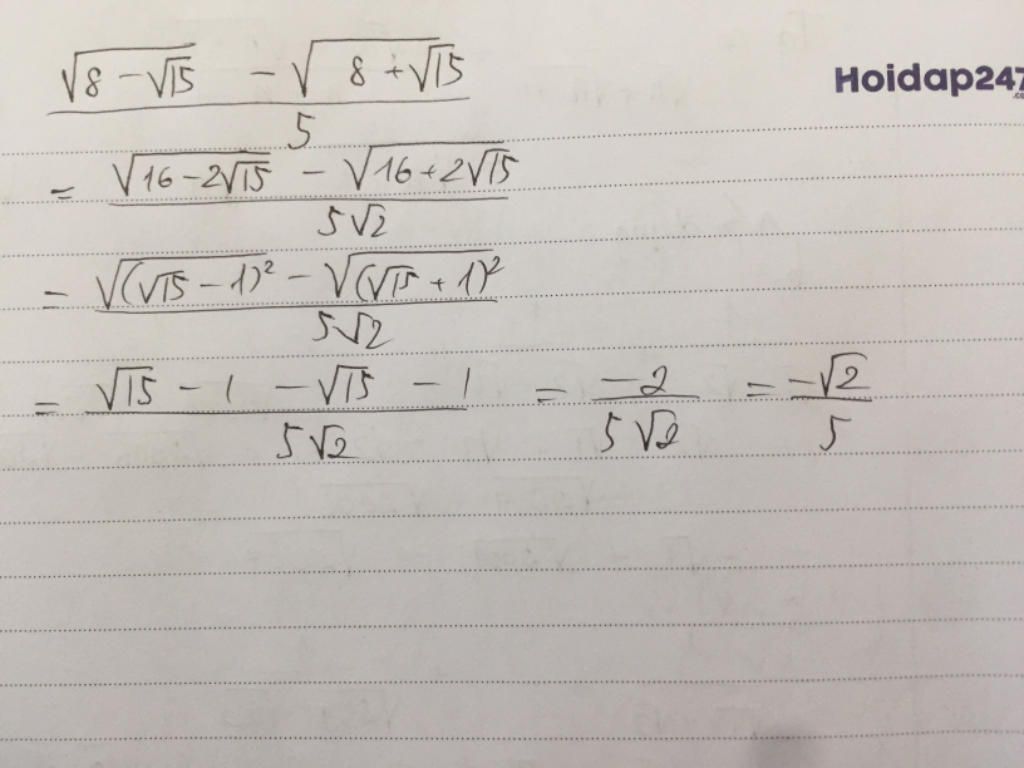 Hoidap247
.com
\frac{\sqrt{8-\sqrt{15}} - \sqrt{8+\sqrt{15}}}{5}
= \frac{\sqrt{16-2\sqrt{15}} - \sqrt{16+2\sqrt{15}}}{5\sqrt{2}}
= \frac{\sqrt{(\sqrt{15}-1)^2} - \sqrt{(\sqrt{15}+1)^2}}{5\sqrt{2}}
= \frac{\sqrt{15}-1-\sqrt{15}-1}{5\sqrt{2}} = \frac{-2}{5\sqrt{2}} = \frac{-\sqrt{2}}{5}